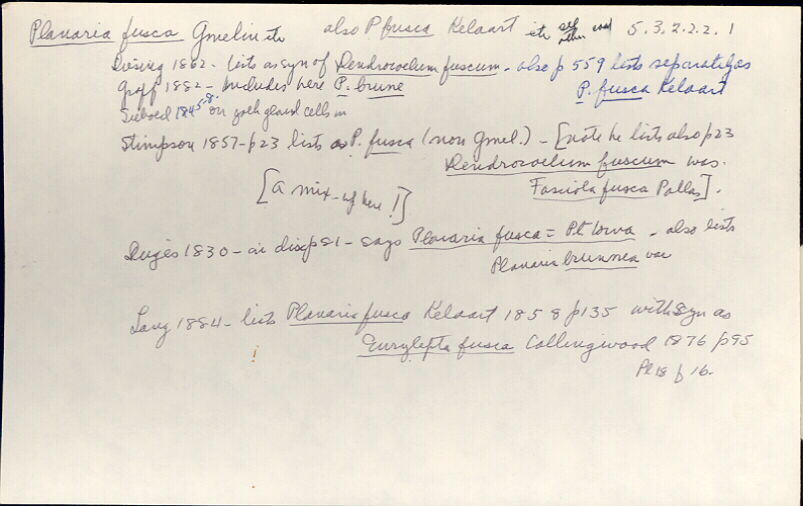 Planaria fusca Gmelin etc also P fusca Kelaart etc see other card 5.3.2.2.2.1
Diesing 1862 - lists as syn of Dendrocoelum fuscum - also p 559 lists separately as
Graff 1882 - includes here P. brune P. fusca Kelaart
Siebold 1845-8 - on yolk gland cells in
Stimpson 1857 - p23 lists as P. fusca (non Gmel.) - [note he lists also p23
Dendrocoelum fuscum was.
[a mix-up here!] Fasciola fusca Pallas].
Dugès 1830 - in disc p81 - says Planaria fusca = Pl. torva - also lists
Planaria brunnea var
Lang 1884 - lists Planaria fusca Kelaart 1858 p135 with syn as
Eurylepta fusca Collingwood 1876 p95
Pl 18 f 16.